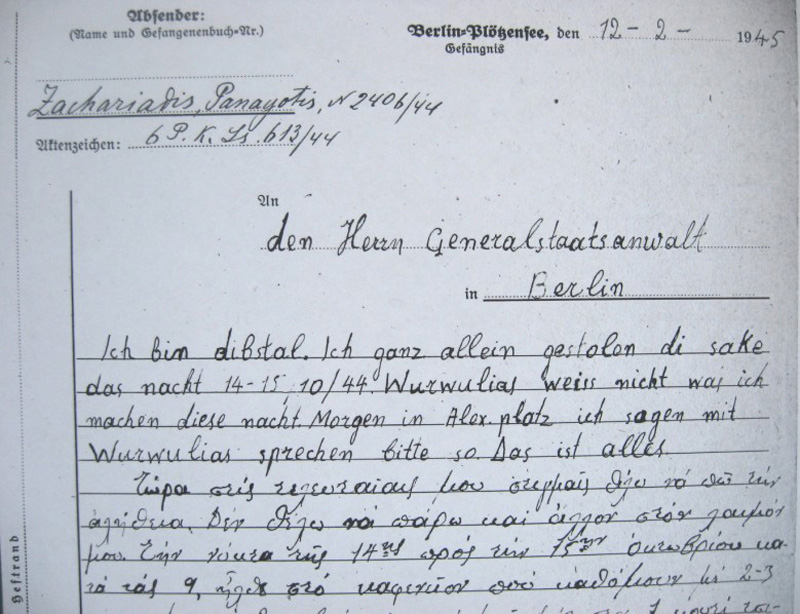 Absender:
(Name und Gefangenenbuch-Nr.)
Berlin-Plötzensee, den 12-2- 1945
Gefängnis
Zachariadis, Panayotis, N 2406/44
Aktenzeichen: 6 P. K. Ls. 613/44
An
den Herrn Generalstaatsanwalt
in Berlin
Ich bin dibstal. Ich ganz allein gestolen di sake
das nacht 14-15, 10/44. Wurwulias weiss nicht was ich
machen diese nacht. Morgen in Alex. platz ich sagen mit
Wurwulias sprechen bitte so. Das ist alles.
Τώρα στίς τελευταίαις μου στιγμαίς θέλω νά πῶ τήν
ἀλήθεια. Δέν θέλω νά πάρω καί ἄλλον στόν λαιμόν
μου. Τήν νύκτα τῆς 14ης πρός τήν 15ην ὀκτωβρίου κα-
τά τάς 9, ἦλθε στό καφενεῖον πού καθόμουν μέ 2-3
Heftrand